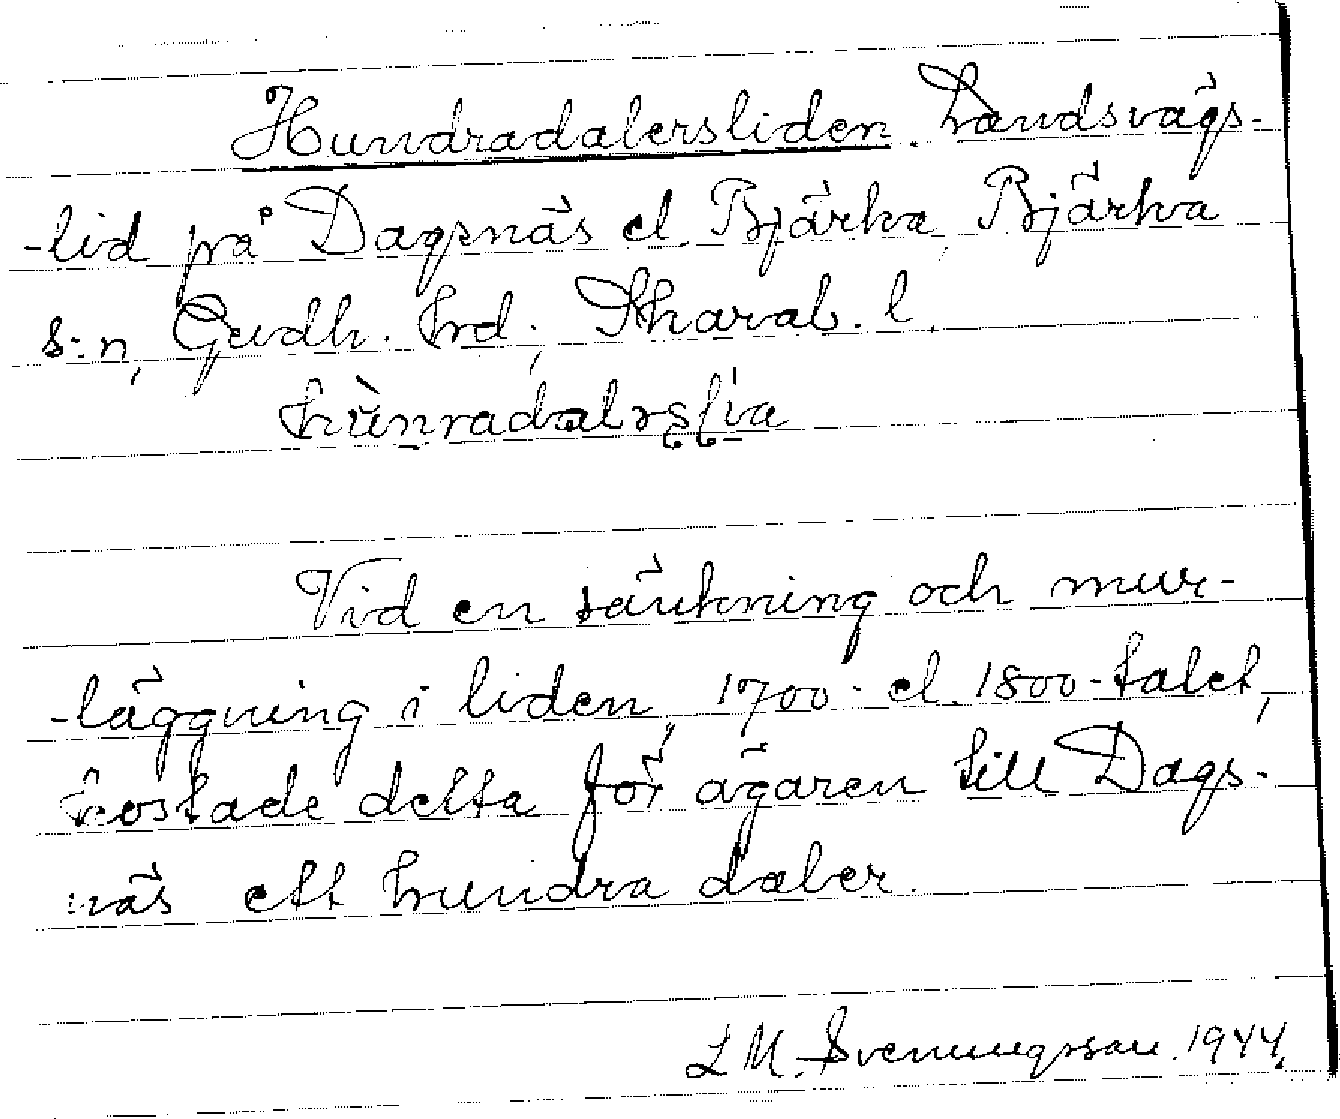 Hundradalersliden. Landsvägs-
-lid på Dagsnäs el. Bjärka, Bjärka
s:n, Gudh. hrd; Skarab. l.
hùnradalərsļia
Vid en sänkning och mur-
-läggning i liden, 1700- el. 1800-talet,
kostade detta för ägaren till Dags-
näs ett hundra daler.
L M. Svenungsson. 1944.